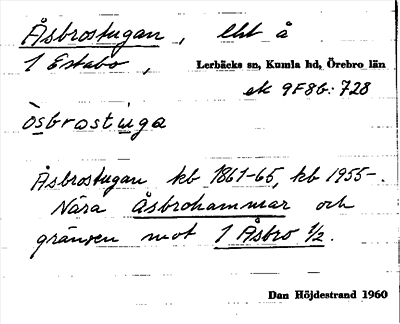 Åsbrostugan, lht å
1 Estabo, Lerbäcks sn, Kumla hd, Örebro län
ek 9F8b: 728
òsbrostuga
Åsbrostugan kb 1861-65, kb 1955-.
Nära Åsbrohammar och
gränsen mot 1 Åsbro 1/2.
Dan Höjdestrand 1960